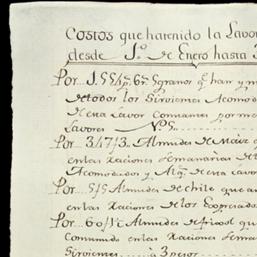 Costos que ha tenido la Lavor
desde 1º de Enero hasta 3
Por 1554 ps 6 rs granos q. han
detodos los Sirvientes Acomod
de esta Lavor Conv
Lavores Nº 5
Por 347/3 Almudes de Maiz q
en las Raciones Semanarias de
Acomodados y Alq. de esta Lavor
Por 5/5 Almudes de chile que an
en las Raciones de los Cooperado
Por 60/1 Almudes de frisol que
Consumido en las Raciones Sema
Sirvientes a 3 pesos